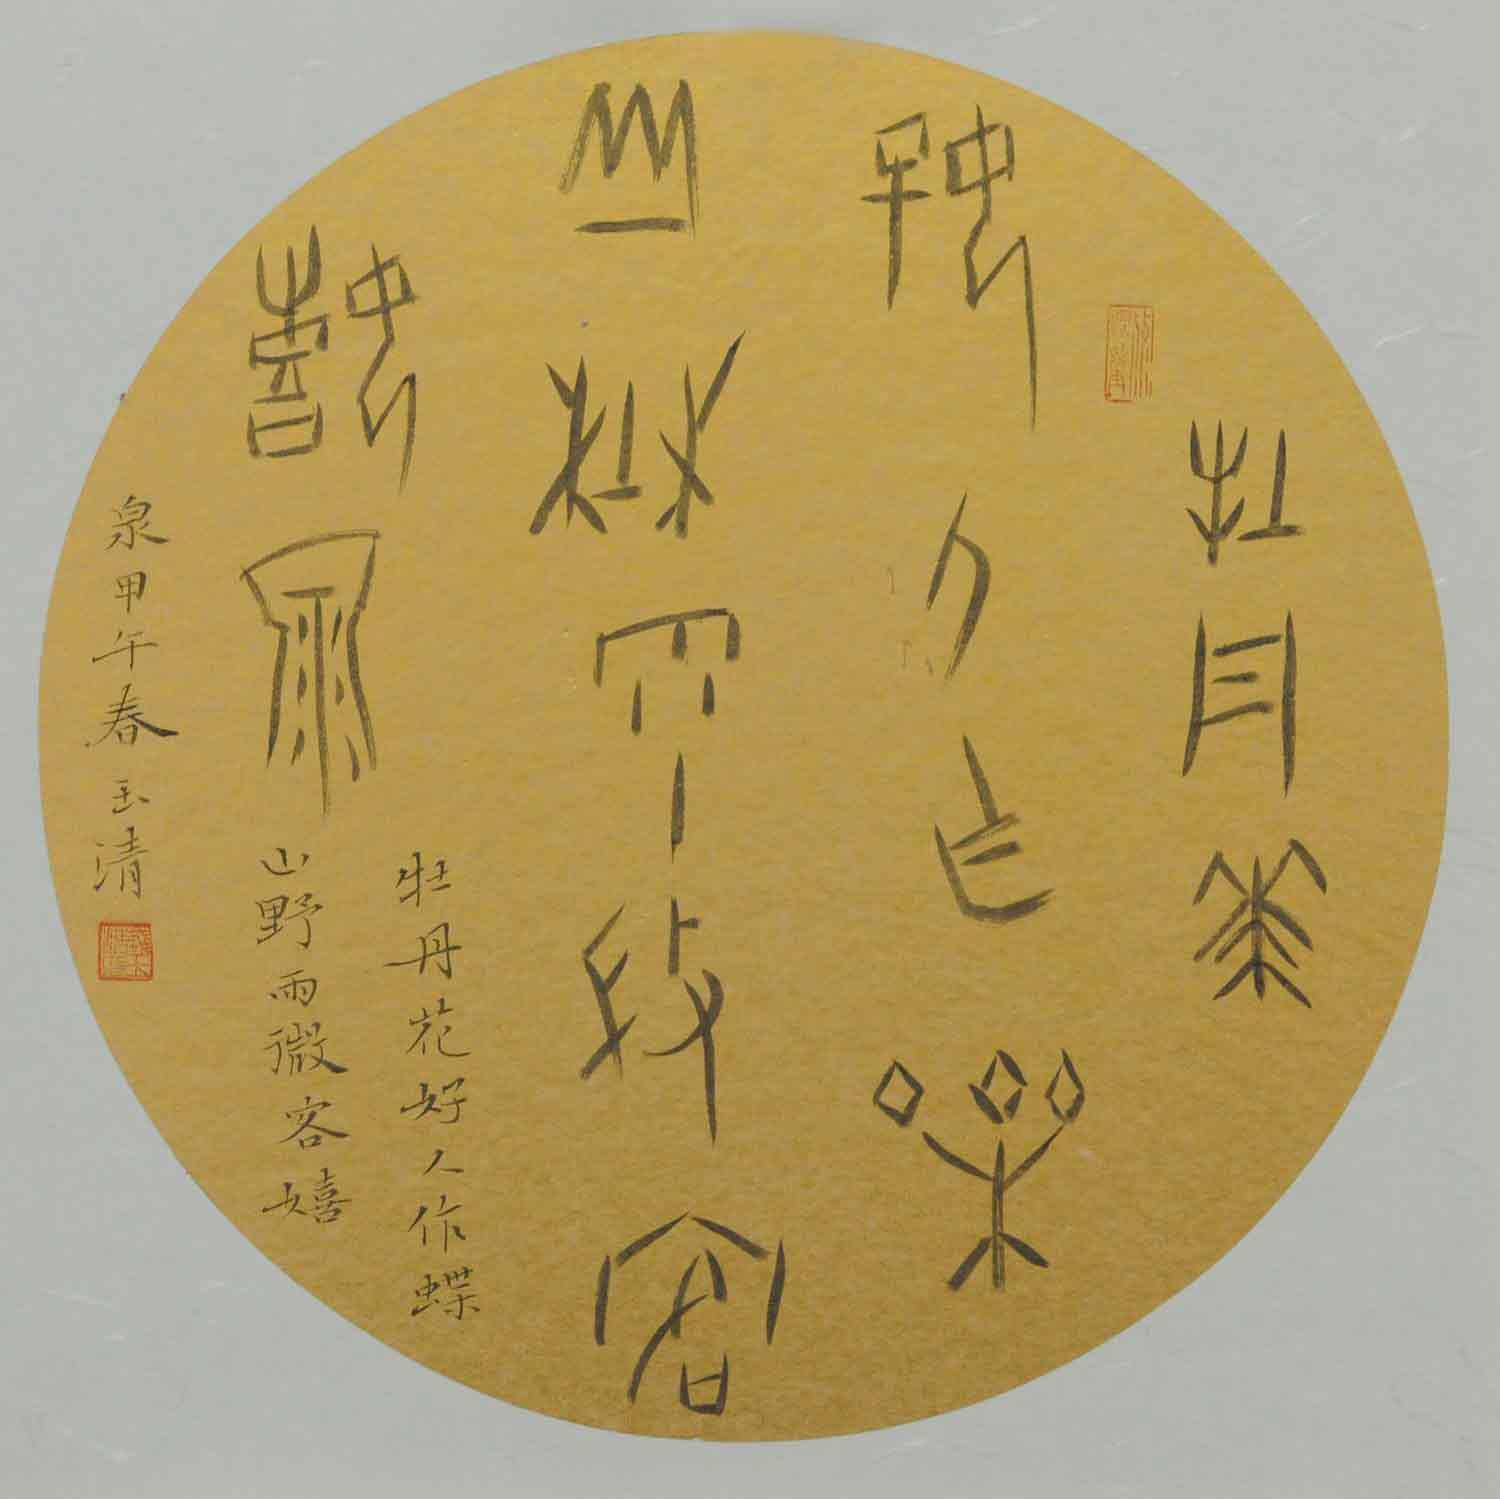 牡丹花
好人作蝶
山野雨微客
嬉泉
牡丹花好人作蝶
山野雨微客嬉
泉甲午春玉清